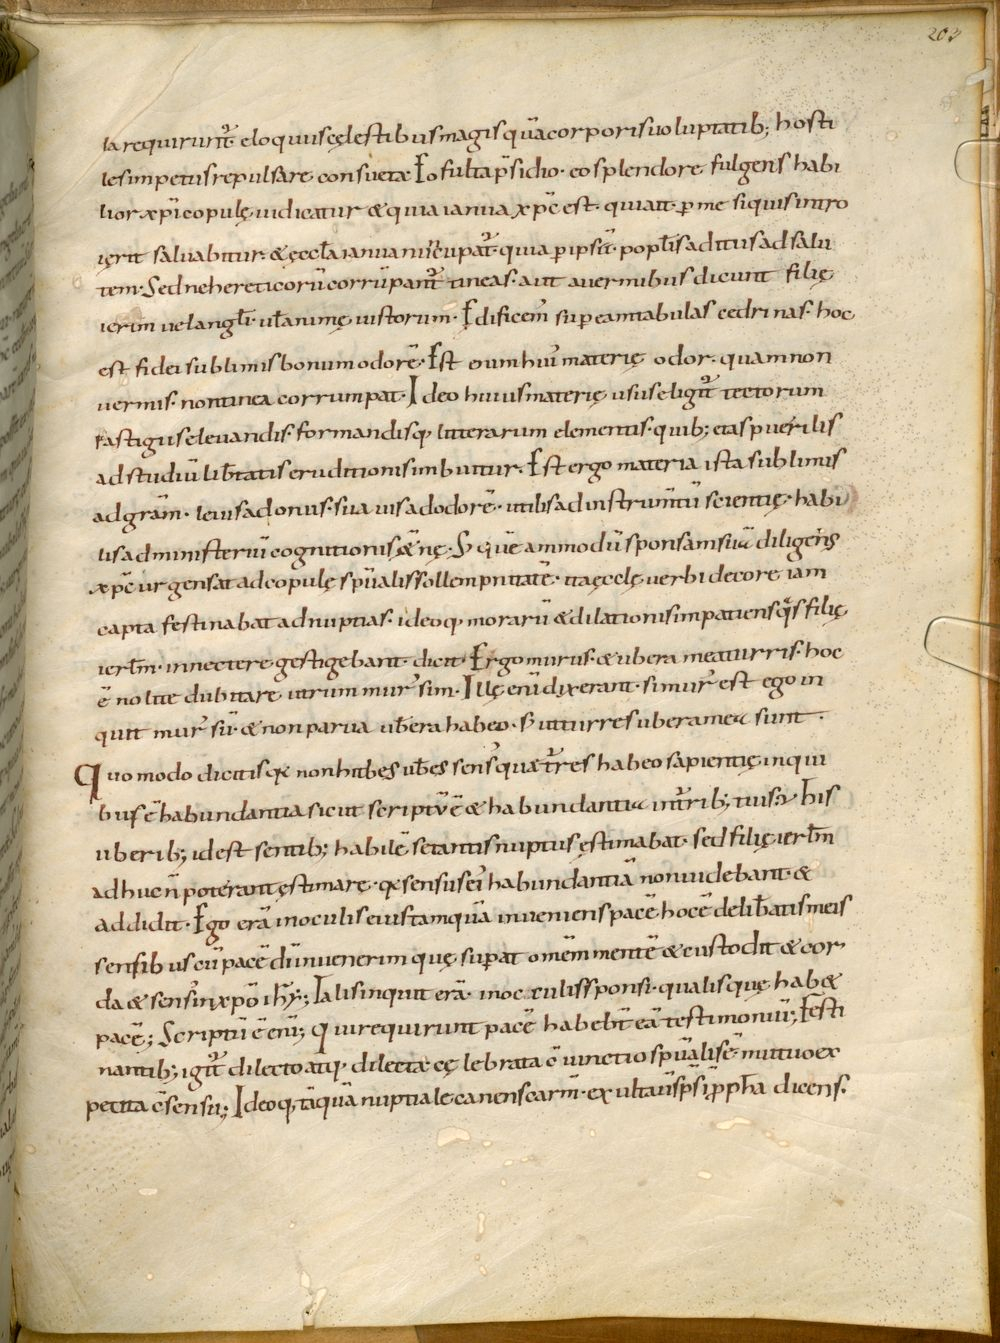 203
la requirunt̃ eloquiis cęlestibus magis quã corporis uoluptatib; hosti
les impetus repulsare consuetæ. Eo fulta p̃sidio. eo splendore fulgens habi
lior xp̃i copulę iudicatur & quia ianua xp̃c est. qui ait. per me si quis intro
ięrit saluabitur. & ęccl̃a ianua nũcupat̃. quia per ipsã. popl̃is aditus ad salu
tem. Sed ne hereticorũ corrũpant̃ tineas. aut a uermibus dicunt filię
ierl̃m uel angl̃i. ul̃ animę iustorum. Edificem̃ super eam tabulas cedrinas. hoc
est fidei sublimis bonum odorẽ. Est enim hui' materię odor. quam non
uermis. non tinea corrumpat. Ideo huius materię usus eligit̃ tectorum
fastigiis eleuandis. formandisq; litterarum elementis. quib; etas puerilis
ad studiũ lib̃tatis eruditionis imbuitur. Est ergo materia ista sublimis
ad grãm. leuis ad onus. suauis ad odorẽ. utilis ad instrum̃tũ scientię. habi
lis ad ministeriũ cognitionis æt̃nę. S; quẽammodũ sponsam suã diligens
xp̃c urgens at ad copulę sp̃ualis sollempnitatẽ. ita ęcclę uerbi decore iam
capta festinabat ad nuptias. ideoq; morarũ & dilationis impatiens q̃s filię
ierl̃m. innectere gestigebant. dicit. Ergo murus. & ubera mea turris. hoc
ẽ nolite dubitare utrum mur' sim. Illę enĩ dixerant. si mur' est ego in
quit mur' sũ. & non parua ub̃era habeo. S; ut turres ubera mea sunt.
Quomodo dicitis qx non hab&es ub̃es sens' quæ t̃res habeo sapientię in qui
bus ẽ habundantia sicut scriptũ ẽ & habundantia in t̃rib; tuis. His
uberib; id est sentib; habilẽ se tantis nuptus ęstimabat. sed filię ierl̃m
adhuc ñ poterant ęstimare. qx sensus ei' habundantiã non uidebant. &
addidit. Ego erã in oculis eius tamquã inueniens pacẽ hoc ẽ delib̃atis meis
sensibus cũ pacẽ dñi inuenerim quę superat omẽm mentẽ & custodit & cor
da & sens' in xp̃o ih̃u; Talis inquit erã. in oculis sponsi. qualis quę hab&
pacẽ; Scriptũ ẽ enĩ; Qui requirunt pacẽ habeb̃t eã testimoniũ; Festi
nantib; igit̃ dilecto atq; dilectæ cęlebrata ẽ uinctio sp̃ualis ẽ mutuo ex
petita ẽ sensu; Ideoq; tãquã nuptiale canens carm̃. exultauit sp̃s; in pph̃a dicens.